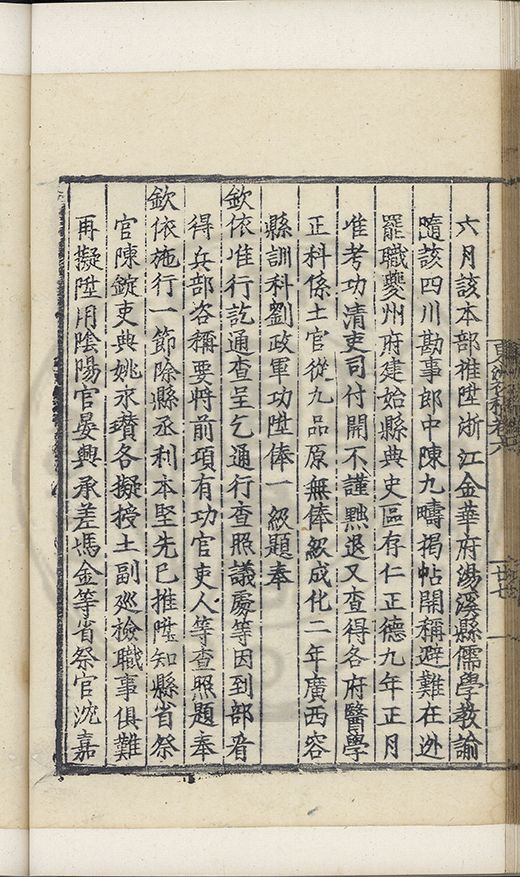 六月該本部推陞浙江金華府湯溪縣儒學教諭
隨該四川勘事郎中陳九疇揭帖開稱避難在迯
罷職夔州府建始縣典史區存仁正德九年正月
准考功清吏司付開不謹黜退又查得各府醫學
正科係土官從九品原無俸級成化二年廣西容
縣訓科劉政軍功陞俸一級題奉
欽依准行訖通查呈乞通行查照議處等因到部看
得兵部咨稱要將前項有功官吏人等查照題奉
欽依施行一節除縣丞利本堅先已推陞知縣省祭
官陳錠吏典姚永瓚各擬授土副巡檢職事俱難
再擬陞用陰陽官晏興承差馮金等省祭官沈嘉